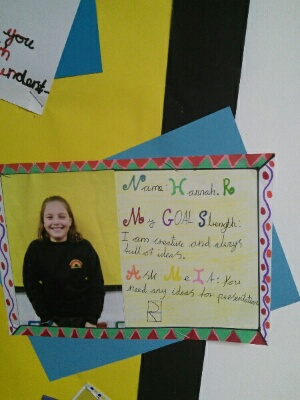 you
n
undent
Name: Hannah. R
My GOAL Strength:
I am creative and always
full of ideas.
Ask Me If: You
need any ideas for presentation